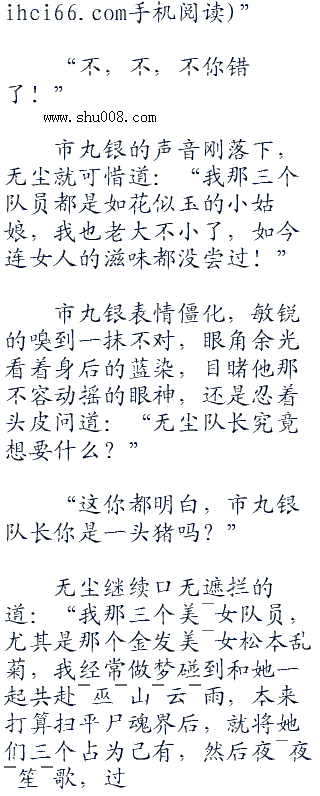 ihci66.com手机阅读)”
“不，不，不你错
了！”
www.shu008.com
市丸银的声音刚落下，
无尘就可惜道：“我那三个
队员都是如花似玉的小姑
娘，我也老大不小了，如今
连女人的滋味都没尝过！”
市丸银表情僵化，敏锐
的嗅到一抹不对，眼角余光
看着身后的蓝染，目睹他那
不容动摇的眼神，还是忍着
头皮问道：“无尘队长究竟
想要什么？”
“这你都明白，市丸银
队长你是一头猪吗？”
无尘继续口无遮拦的
道：“我那三个美¯女队员，
尤其是那个金发美¯女松本乱
菊，我经常做梦碰到和她一
起共赴¯巫¯山¯云¯雨，本来
打算扫平尸魂界后，就将她
们三个占为己有，然后夜¯夜
¯笙¯歌，过